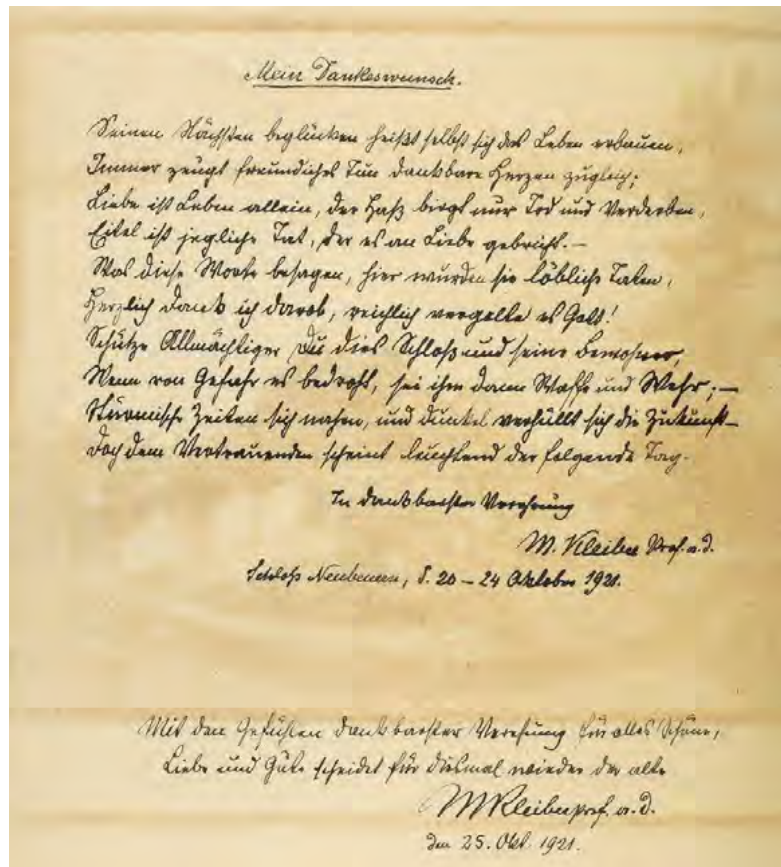 Mein Dankeswunsch.
Seinen Nächsten beglücken heißt selbst sich das Leben erbauen,
Immer zeugt freundliches Tun dankbare Herzen zugleich;
Liebe ist Leben allein, der Haß birgt nur Tod und Verderben,
Eitel ist jegliche Tat, der es an Liebe gebricht. –
Was diese Worte besagen, hier wurden sie löbliche Taten,
Herzlich dank ich darob, reichlich vergelte es Gott!
Schütze Allmächtiger Du dies Schloß und seine Bewohner,
Wenn von Gefahr es bedroht, sei ihm dann Waffe und Wehr; –
Stürmische Zeiten sich nahen, und dunkel verhüllt sich die Zukunft –
Doch dem Vertrauenden scheint leuchtend der folgende Tag.
In dankbarster Verehrung
M. Kleiber Prof. a. d.
Schloß Neubeuern, d. 20 – 24 Oktober 1921.
Mit den Gefühlen dankbarster Verehrung für alles Schöne,
Liebe und Gute scheidet für diesmal wieder der alte
M Kleiber prof. a. d.
den 25. Okt. 1921.